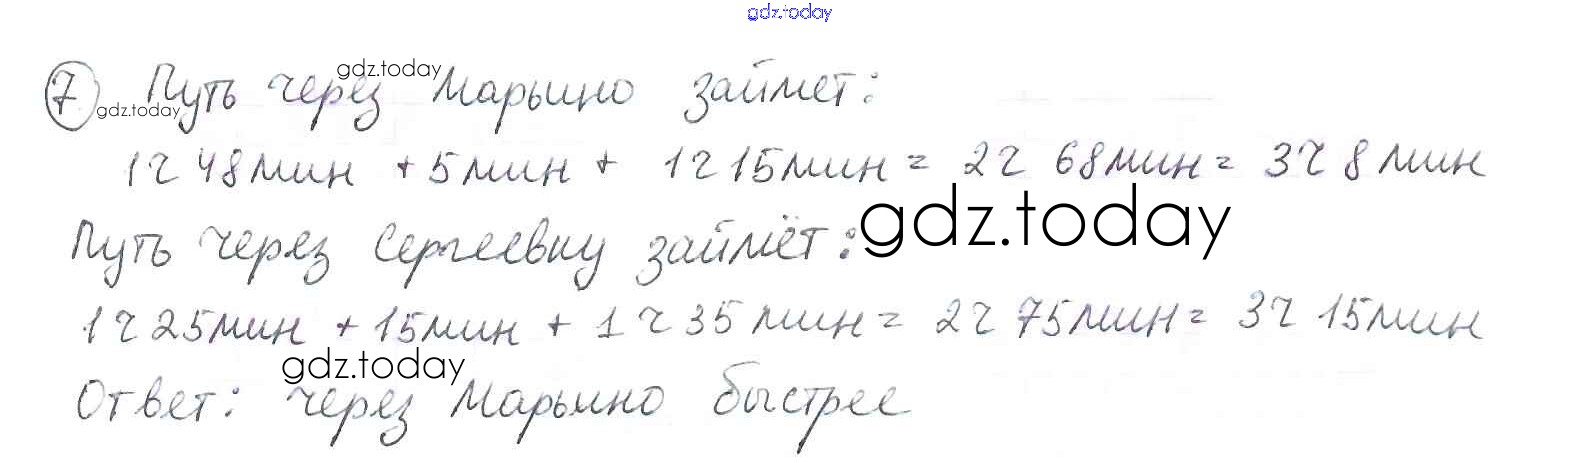 gdz.today
7 Путь через Марьино займет:
gdz.today
gdz.today
1ч 48мин + 5мин + 1ч 15мин = 2ч 68мин = 3ч 8мин
Путь через Сергеевку займёт:
gdz.today
1ч 25мин + 15мин + 1ч 35мин = 2ч 75мин = 3ч 15мин
gdz.today
Ответ: через Марьино быстрее